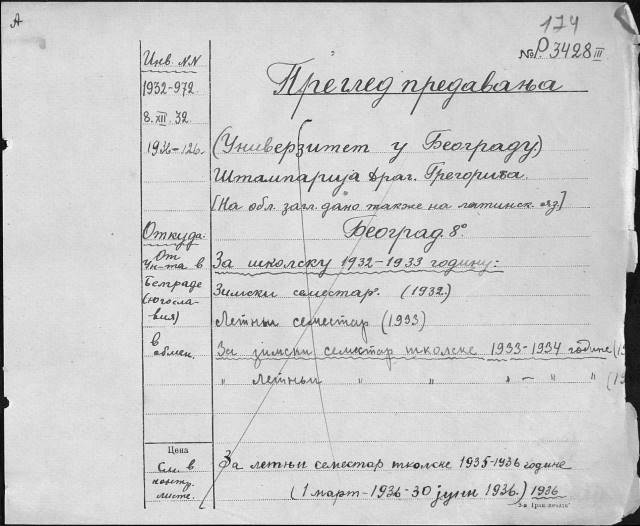 А
174
№ Р. 3428 III
Инв. NN
1932-972
8. XII. 32
1936-126.
Преглед предавања
(Универзитет у Београду)
Штампарија Драг. Грегорића.
[На обл. загл. дано также на латинск. яз]
Београд. 8°
Откуда:
От
ун-та в
Белграде
(Югосла-
вия)
в
обмен.
За школску 1932-1933 годину:
Зимски семестар. (1932.)
Летњи семестар (1933)
За зимски семестар школске 1933-1934 године (19
" летњи " " " - " " (19
Цена
См. в
контр.
листе.
За летњи семестар школске 1935-1936 године
(1 март-1936-30 јуни 1936.) 1936